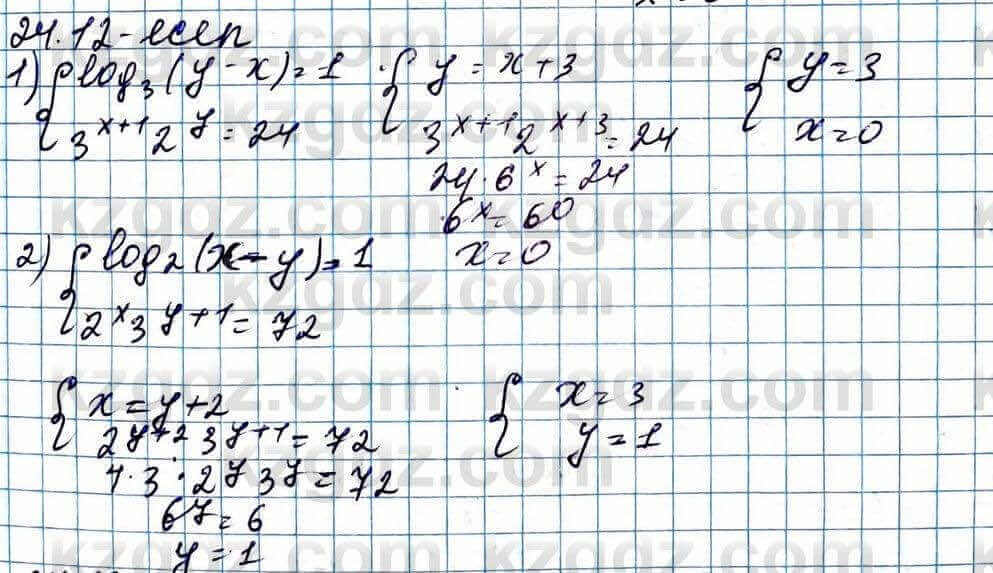 24.12-есеп
1) { log₃(y-x)=1 { y=x+3 { y=3
3ˣ⁺¹2ʸ=24 3ˣ⁺¹2ˣ⁺³=24 x=0
24·6ˣ=24
6ˣ=6⁰
x=0
2) { log₂(x-y)=1
2ˣ3ʸ⁺¹=72
{ x=y+2 { x=3
2ʸ⁺²3ʸ⁺¹=72 y=1
4·3·2ʸ3ʸ=72
6ʸ=6
y=1
kzgdz.com